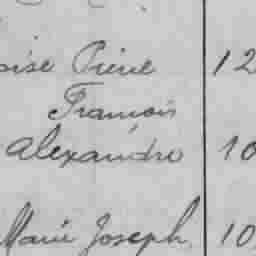 oise Pierre 12
François
Alexandre 10
Marie Joseph 10